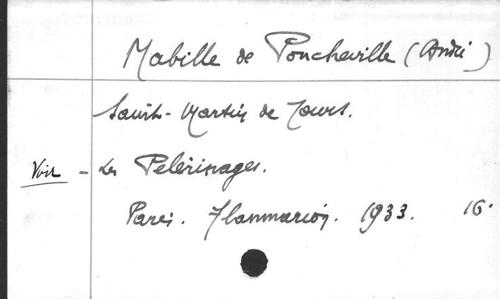 Mabille de Poncheville (André)
Saint-Martin de Tours.
Voir - Les Pélerinages.
Paris. Flammarion. 1933. 16°